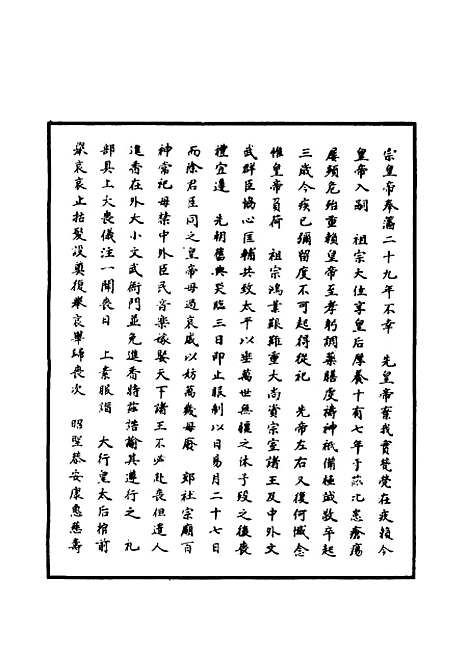 宗皇帝奉藩二十九年不幸 先皇帝棄我實煢煢在疚賴今
皇帝入嗣 祖宗大位享皇后厚養十有七年于茲比患瘡瘍
屢頻危殆重賴皇帝至孝躬調藥膳虔禱神祇備極誠敬卒起
三歲今疾已彌留度不可起得從祀 先帝左右又復何憾念
惟皇帝負荷 祖宗鴻業艱難重大尚資宗室諸王及中外文
武群臣協心匡輔共致太平以垂萬世無疆之休予歿之後喪
禮宜遵 先朝舊典哭臨三日即止服制以日易月二十七日
而除君臣同之皇帝毋過哀戚以妨萬幾毋廢 郊社宗廟百
神常祀毋禁中外臣民音樂嫁娶天下諸王不必赴喪但遣人
進香在外大小文武衙門並免進香特茲誥諭其遵行之 禮
部具上大喪儀注一聞喪日 上素服詣 大行皇太后柩前
舉哀哀止括髮設奠復舉哀畢歸喪次 昭聖恭安康惠慈壽